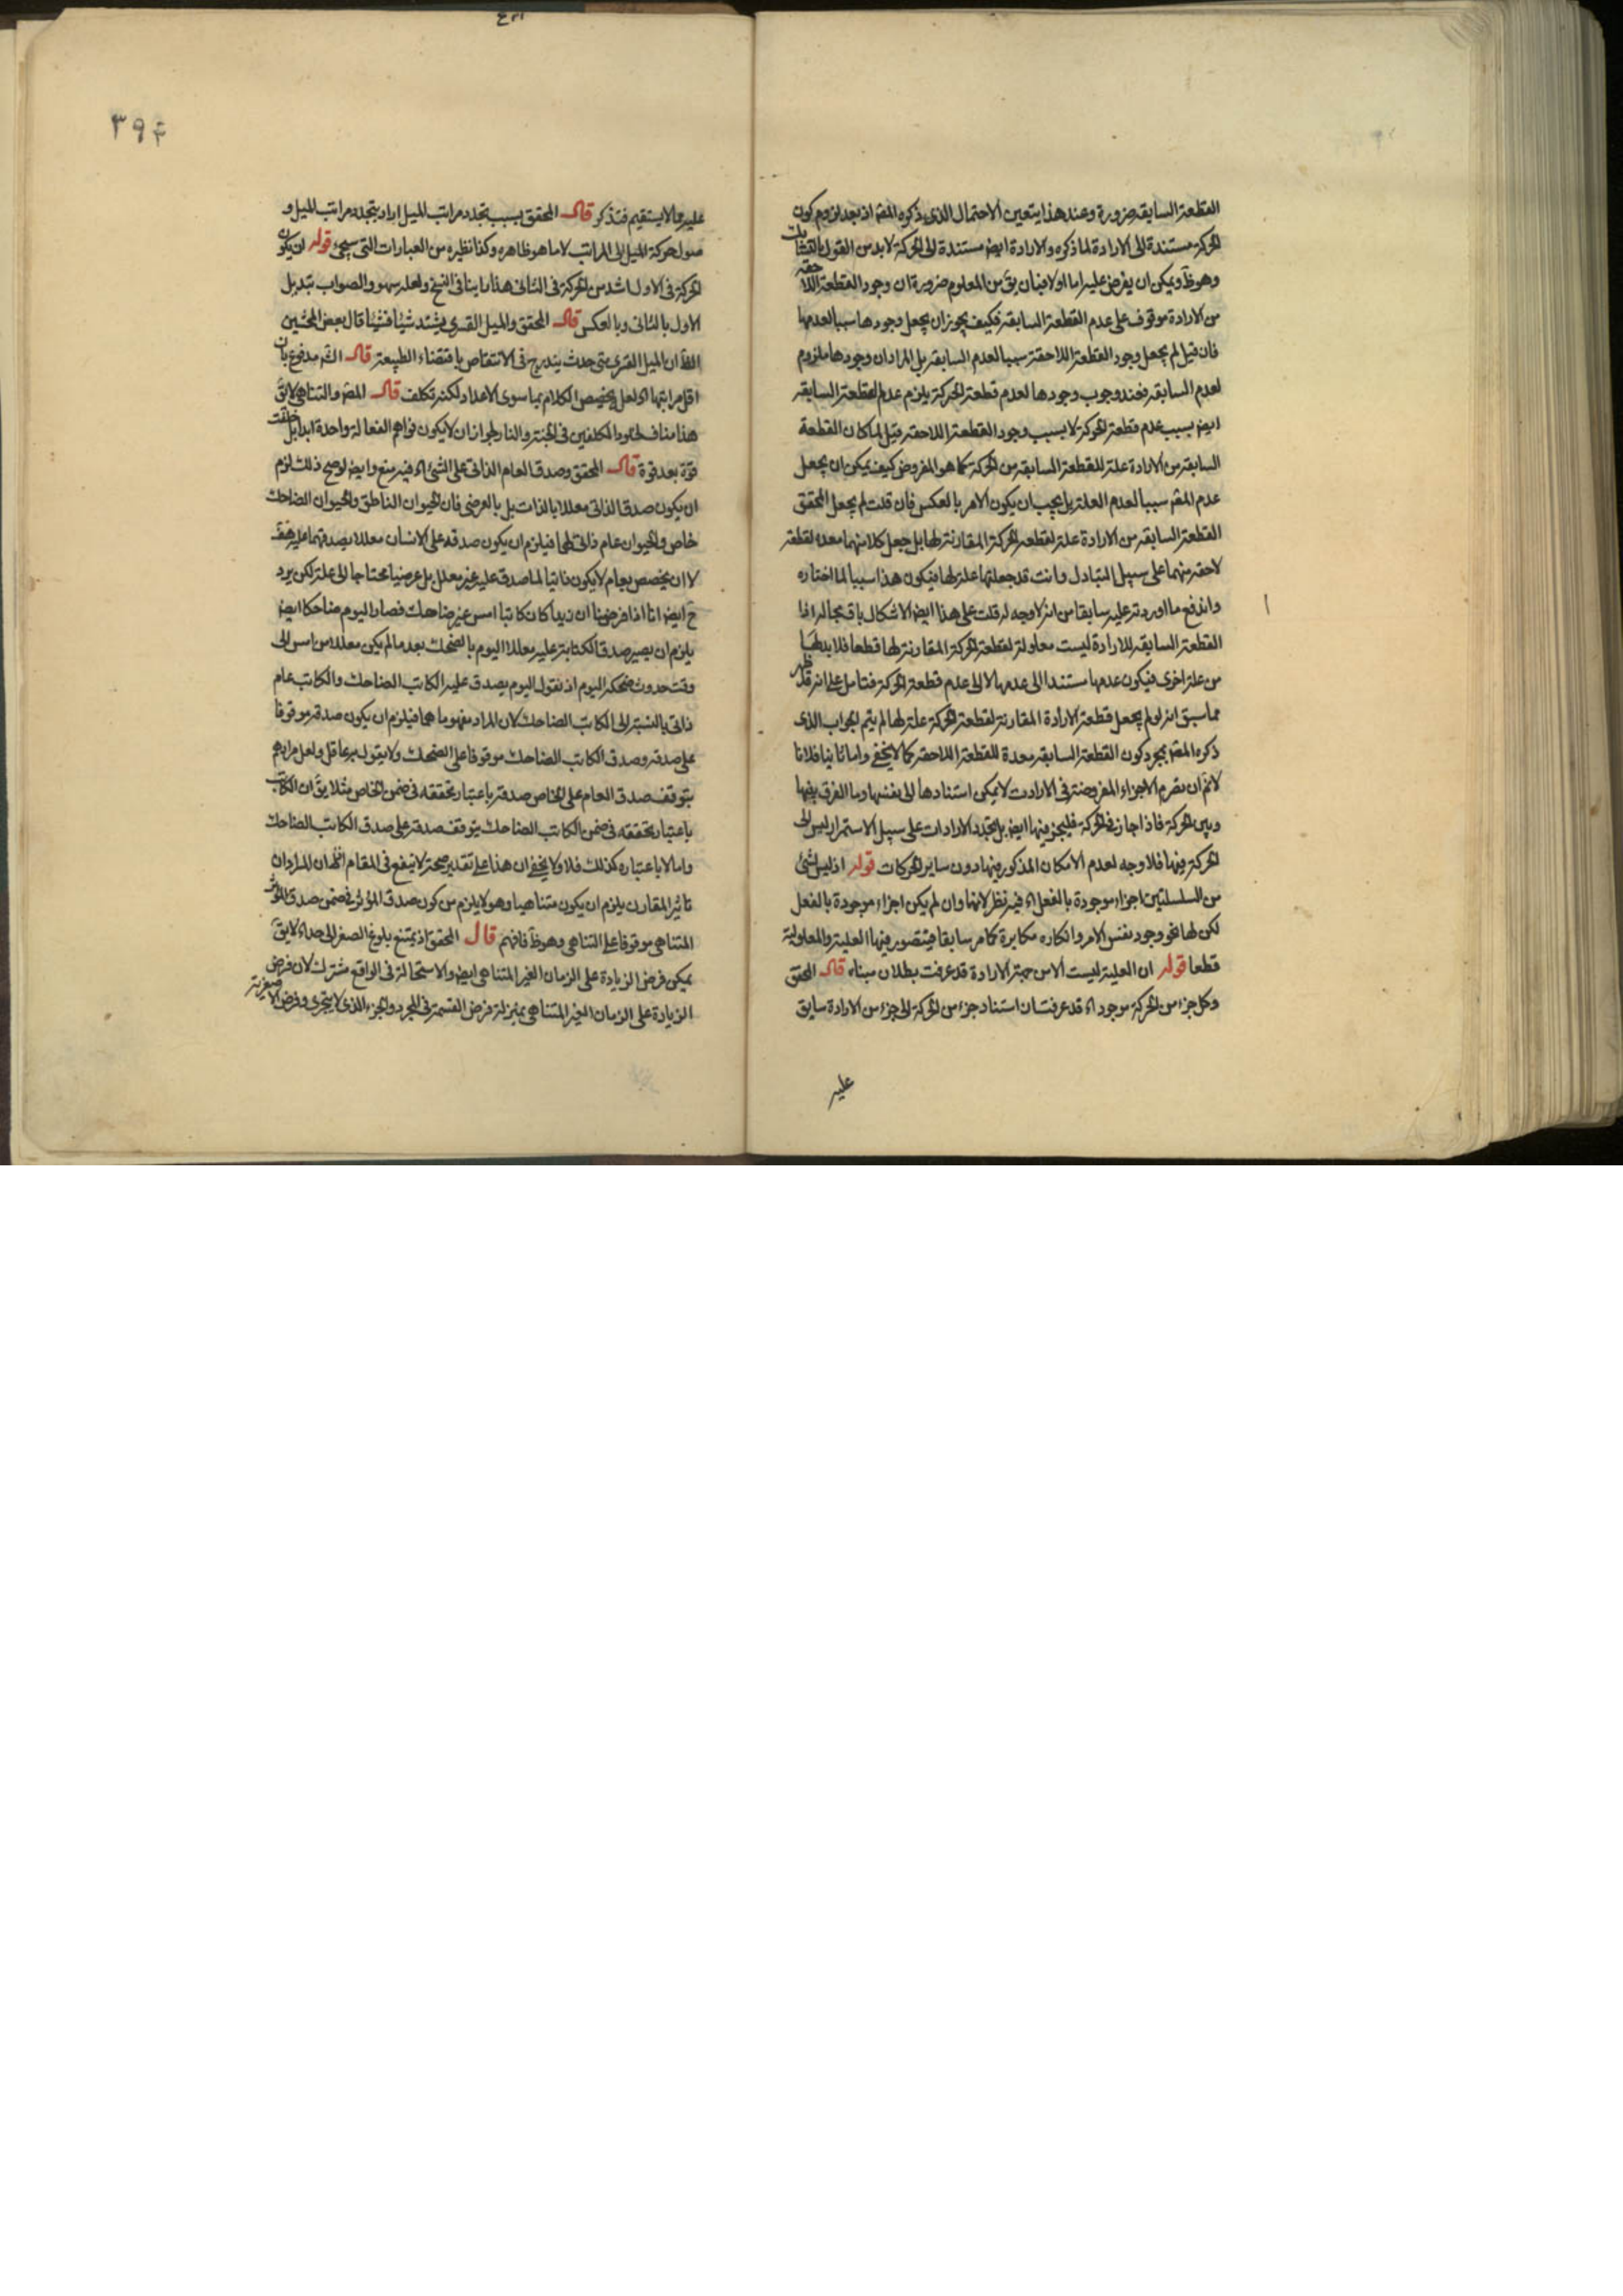 القطعة السابقة ضرورة وعند هذا يتعين الاحتمال الذى ذكره المص اذ بعد لزوم كون
الحركة مستندة الى الارادة لما ذكره والارادة ايض مستندة الى الحركة لا بد من القول
وهو ظ ويمكن ان يعرض عليه اما اولا فبان يق من المعلوم ضرورة ان وجود القطعة اللاحقة
من الارادة موقوف على عدم القطعة السابقة فكيف يجوز ان يجعل وجودها سببا لعدمها
فان قيل لم يجعل وجود القطعة اللاحقة سببا لعدم السابقة بل المراد ان وجودها ملزوم
لعدم السابقة فعند وجوب وجودها لعدم قطعة الحركة يلزم عدم القطعة السابقة
ايض بسبب عدم قطعة الحركة لا بسبب وجود القطعة اللاحقة قيل لما كان القطعة
السابقة من الارادة علة للقطعة السابقة من الحركة كما هو المفروض كيف يمكن ان يجعل
عدم المعـ سببا لعدم العلة بل يجب ان يكون الامر بالعكس فان قلت لم يجعل المحقق
القطعة السابقة من الارادة علة لقطعة الحركة المقارنة لها بل جعل كلا منهما معدا لقطعة
لاحقة منهما على سبيل التبادل وانت قد جعلتها علة لها فيكون هذا سببا لما اختاره
واندفع ما اوردته عليه سابقا من انه لا وجه له قلت على هذا ايض الاشكال باق بحاله اذا
القطعة السابقة للارادة ليست معلولة لقطعة الحركة المقارنة لها قطعا فلا بد لها
من علة اخرى فيكون عدمها مستندا الى عدمها لا الى عدم قطعة الحركة فتامل على انه قد ظهر
مما سبق انه لو لم يجعل قطعة الارادة المقارنة لقطعة الحركة علة لها لم يتم الجواب الذى
ذكره المص بمجرد كون القطعة السابقة معدة للقطعة اللاحقة كما لا يخفى واما ثانيا فلانا
لانم ان تصرم الاجزاء المفروضة فى الارادات لا يمكن استنادها الى نفسها وما الفرق بينها
وبين الحركة فاذا جاز فى الحركة فليجز فيها ايض بل تجدد الارادات على سبيل الاستمرار ليس الى
الحركة فيها فلا وجه لعدم الامكان المذكور فيها دون ساير الحركات قوله اذ ليس لشئ
من السلسلتين اجزاء موجودة بالفعل اه فيه نظر لانها وان لم يكن اجزاء موجودة بالفعل
لكن لها نحو وجود بنفس الامر وانكاره مكابرة كما مر سابقا فيتصور فيها العلية والمعلولية
قطعا قوله ان العلية ليست الا من جهة الارادة قد عرفت بطلان مبناه قال المحقق
وكل جزء من الحركة موجود اه قد عرفت ان استناد جزء من الحركة الى جزء من الارادة سابق
عليه
٣٩٤
عليه مما لا يستقيم فتذكر قال المحقق بسبب تجدد مراتب الميل اراد بتجدد مراتب الميل و
حركة الميل الى المراتب لا ما هو ظاهره وكذا نظيره من العبارات التى سيجئ قوله ان يكون
الحركة فى الاول اشد من الحركة فى الثانى هذا ما بنا فى النسخ ولعله سهو والصواب تبديل
الاول بالثانى وبالعكس قال المحقق والميل القسرى يشتد شيئا فشيئا قال بعض المحشين
الظ ان الميل القسرى متى حدث يتدرج فى الانتقاص باقتضاء الطبيعة قال الش مدفوع بان
اقل مراتبها اه لعل تخصيص الكلام بما سوى الاعداد لكنه تكلف قال المص والتناهى لا يق
هذا مناف لخلود المكلفين فى الجنة والنار لجواز ان لا يكون قواهم الفعالة واحدة ابدا بل خلقت
قوة بعد قوة قال المحقق وصدق العام الذاتى على الشئ اه فيه منع وايض لو صح ذلك لزم
ان يكون صدق الذاتى معللا بالذات بل بالعرضى فان الحيوان الناطق والحيوان الضاحك
خاص والحيوان عام ذاتى لهما فيلزم ان يكون صدقه على الانسان معللا بصدقهما عليه هف
لا ان يخصص بعام لا يكون ذاتيا لما صدق عليه غير معلل بل عرضيا محتاجا الى علة لكن يرد
ح ايض انا اذا فرضنا ان زيدا كان كاتبا امس غير ضاحك فصار اليوم ضاحكا ايض
يلزم ان يصير صدق الكتابة عليه معللا اليوم بالضحك بعد ما لم يكن معللا من امس الى
وقت حدوث ضحكه اليوم اذ نقول اليوم يصدق عليه الكاتب الضاحك والكاتب عام
ذاتى بالنسبة الى الكاتب الضاحك لان المراد مفهوماهما فيلزم ان يكون صدقه موقوفا
على صدقه وصدق الكاتب الضاحك موقوفا على الضحك ولا يقول به عاقل ولعل مرادهم
بتوقف صدق العام على الخاص صدقه باعتبار تحققه فى ضمن الخاص مثلا يق ان الكاتب
باعتبار تحققه فى ضمن الكاتب الضاحك يتوقف صدقه على صدق الكاتب الضاحك
واما لا باعتباره كذلك فلا ولا يخفى ان هذا على تقدير صحته لا ينفع فى المقام اذ المراد ان
تاثير المقارن يلزم ان يكون متناهيا وهو لا يلزم من كون صدق المؤثر فى ضمن صدق المؤثر
المتناهى موقوفا على التناهى وهو ظ فافهم قال المحقق اذ يمتنع بلوغ الصغر الى حد اه لا يق
يمكن فرض الزيادة على الزمان الغير المتناهى ايض والاستحالة فى الواقع مشترك لان فرض
الزيادة على الزمان الغير المتناهى بمنزلة فرض القسمة فى المجرد والجزء الذى لا يتجزى وفرض الاصغرية